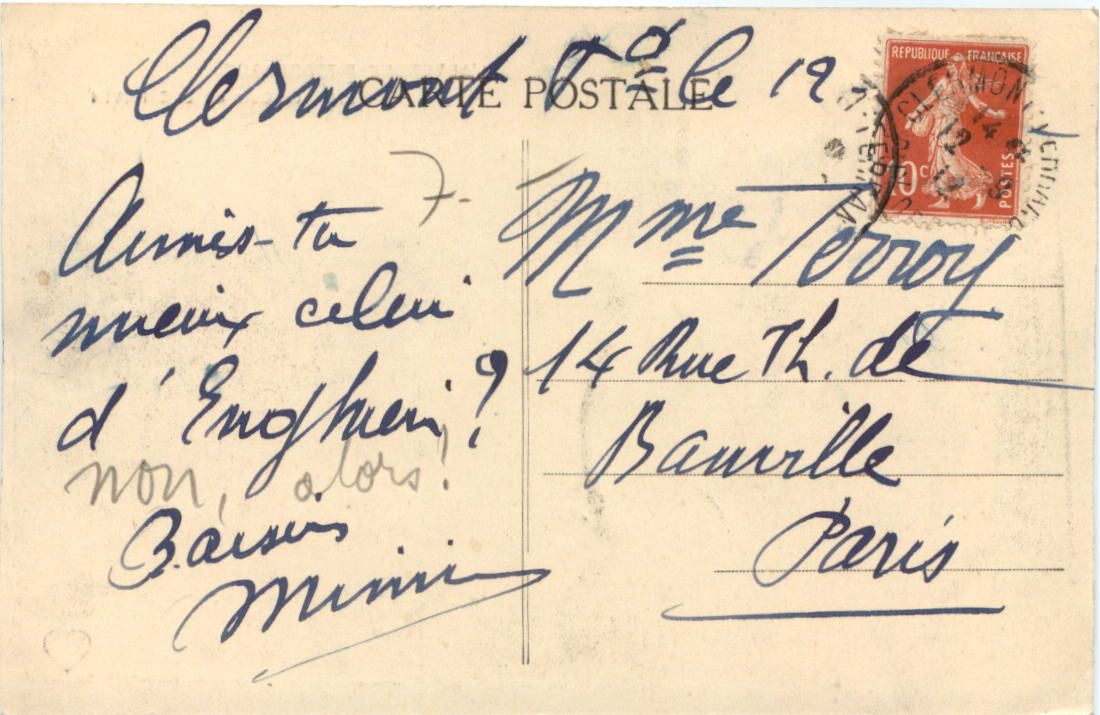 Clermont Fd le 12
CARTE POSTALE
REPUBLIQUE FRANÇAISE
10c
POSTES
CLERMONT-FERRAND
7-
Aimes-tu
mieux celui
d'Enghien?
non, alors!
Baisers
Mimi
Mme Terroy
14 Rue Th. de
Banville
Paris